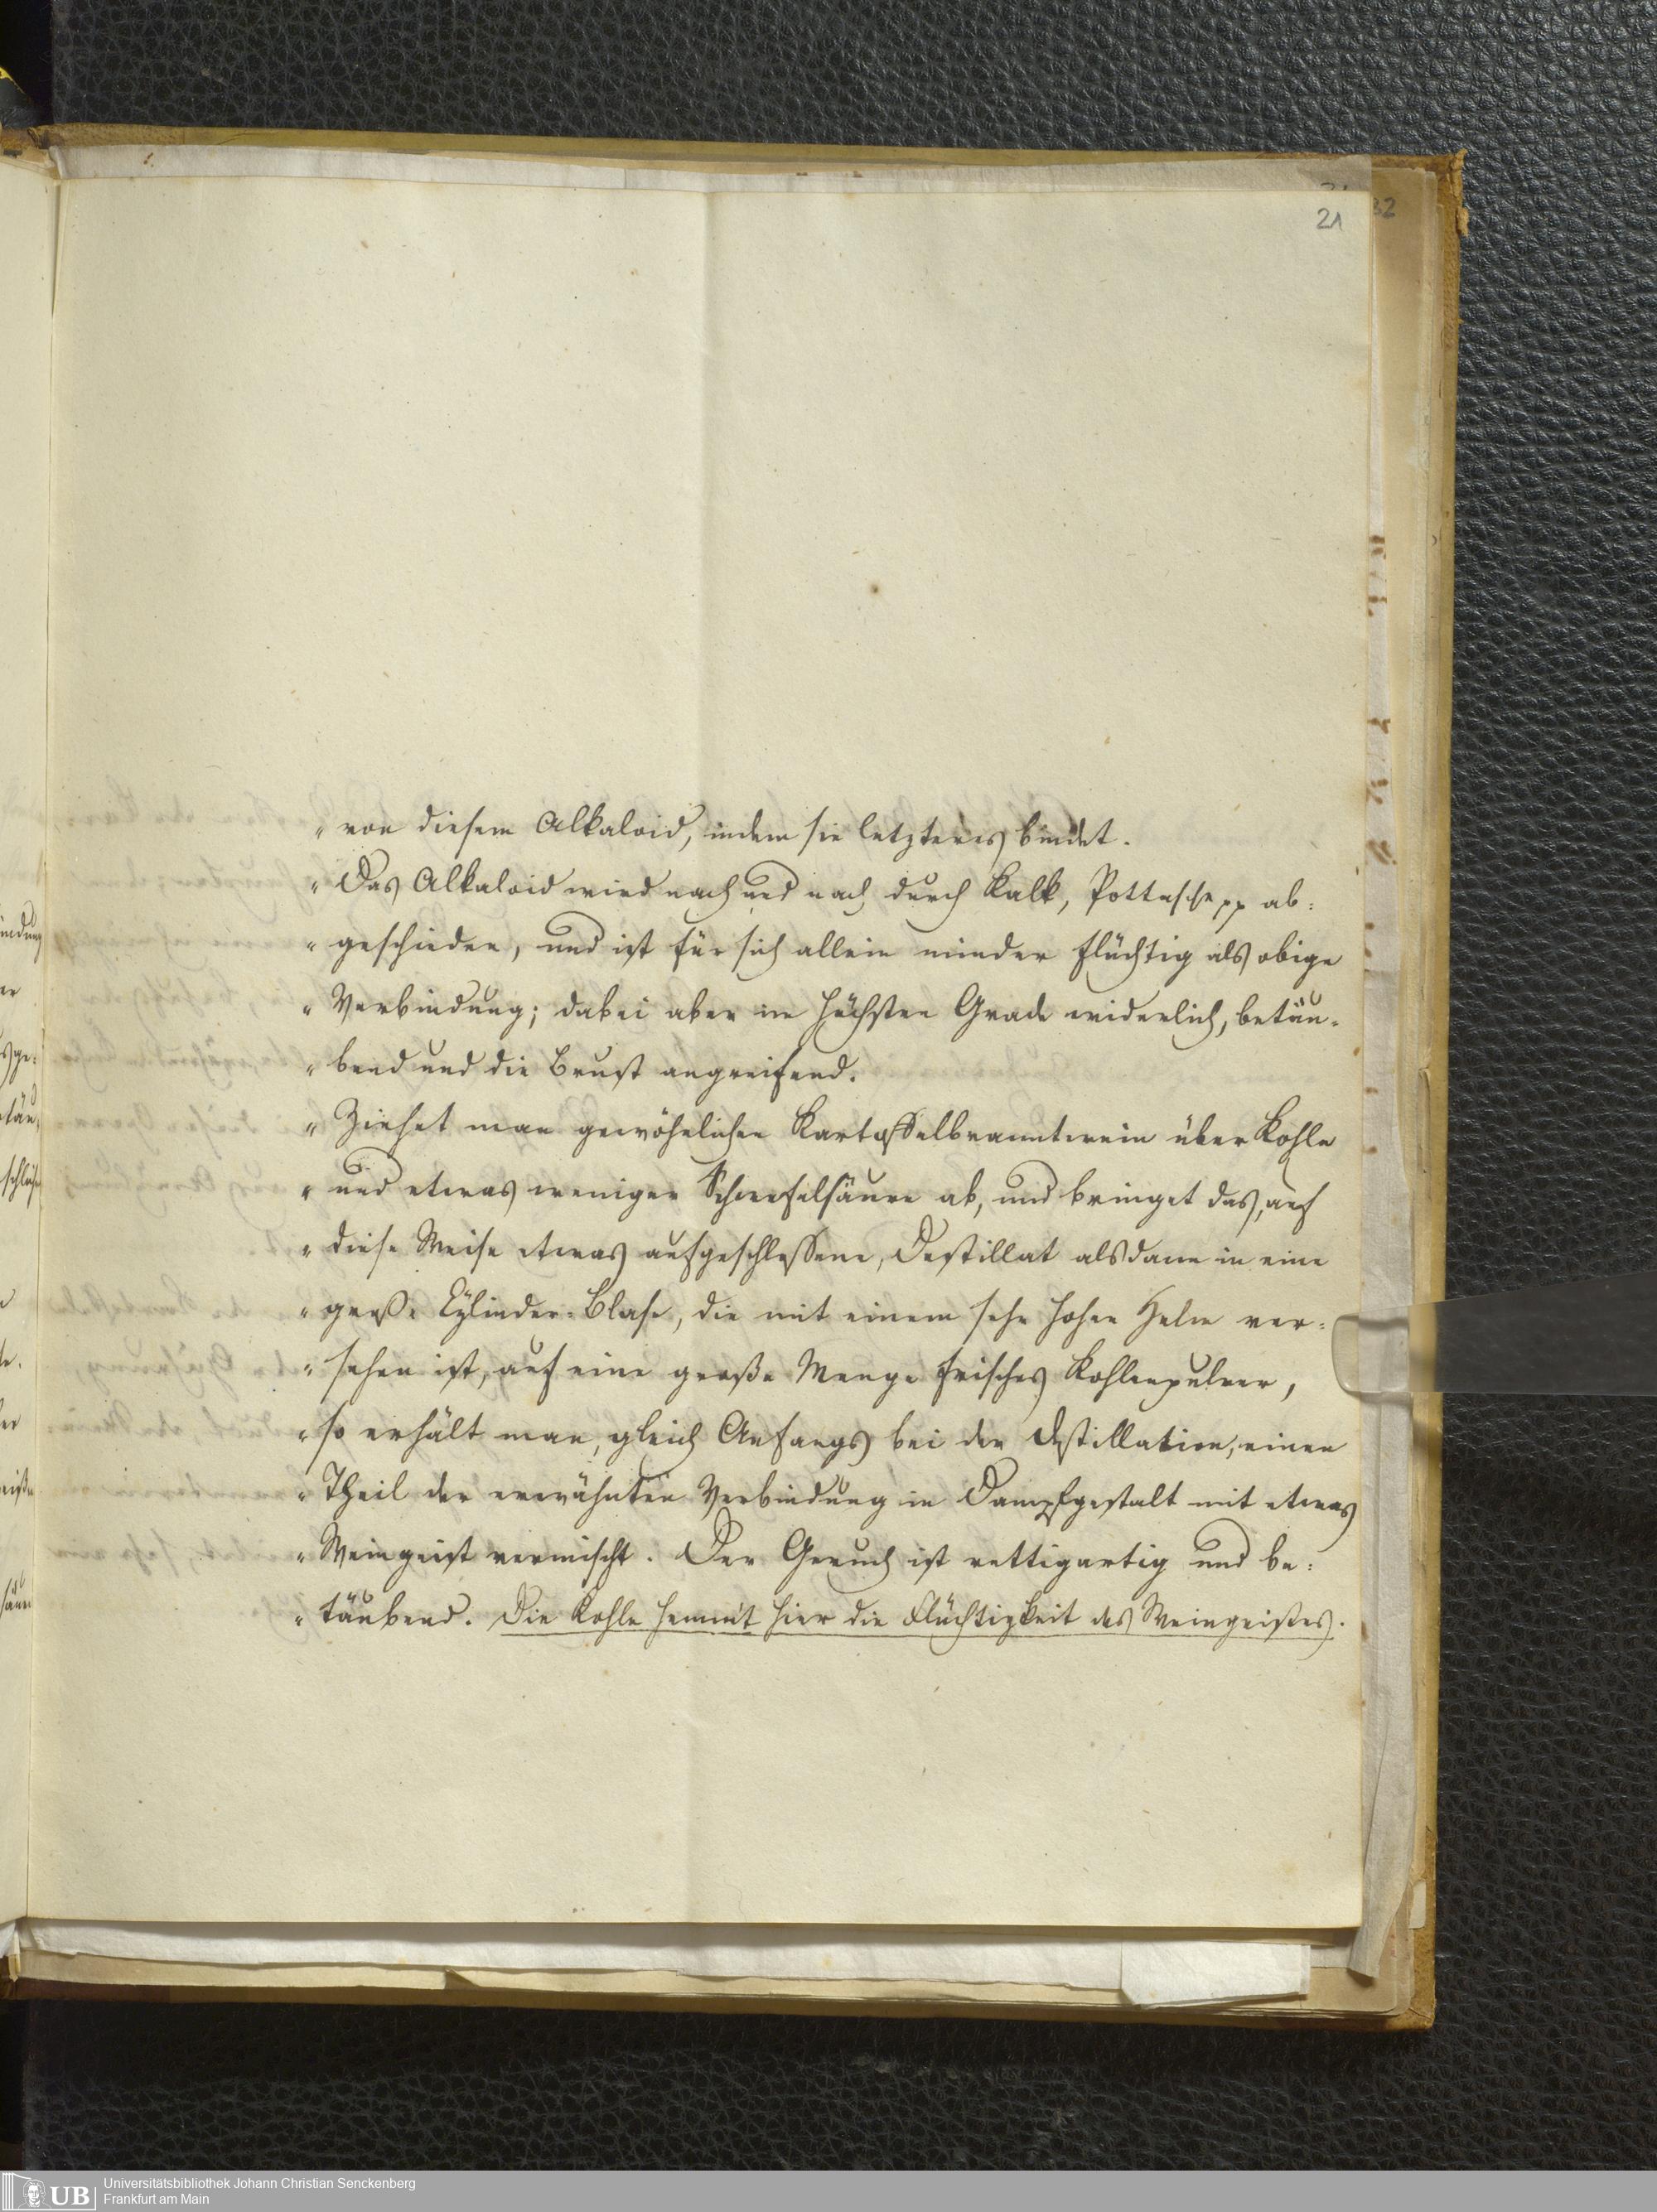 21
32
„ von diesem Alkaloid, indem sie letzteres bindet.
„ Das Alkaloid wird nach und nach durch Kalk, Pottasche pp ab:
„ geschieden, und ist für sich allein minder flüchtig als obige
„ Verbindung; dabei aber im höchsten Grade widerlich, betäu-
„ bend und die Brust angreifend.
„ Ziehet man gewöhnlichen Kartoffelbranntwein über Kohle
„ und etwas weniger Schwefelsäure ab, und bringet das, auf
„ diese Weise etwas aufgeschlossene, Destillat alsdann in eine
„ große Cylinder-Blase, die mit einem sehr hohen Helm ver-
„ sehen ist, auf eine große Menge frisches Kohlenpulver,
„ so erhält man, gleich Anfangs bei der Destillation, einen
„ Theil der erwähnten Verbindung in Dampfgestalt mit etwas
„ Weingeist vermischt. Der Geruch ist rettigartig und be:
„ täubend. Die Kohle hemmt hier die Flüchtigkeit des Weingeistes.
UB
Universitätsbibliothek Johann Christian Senckenberg
Frankfurt am Main